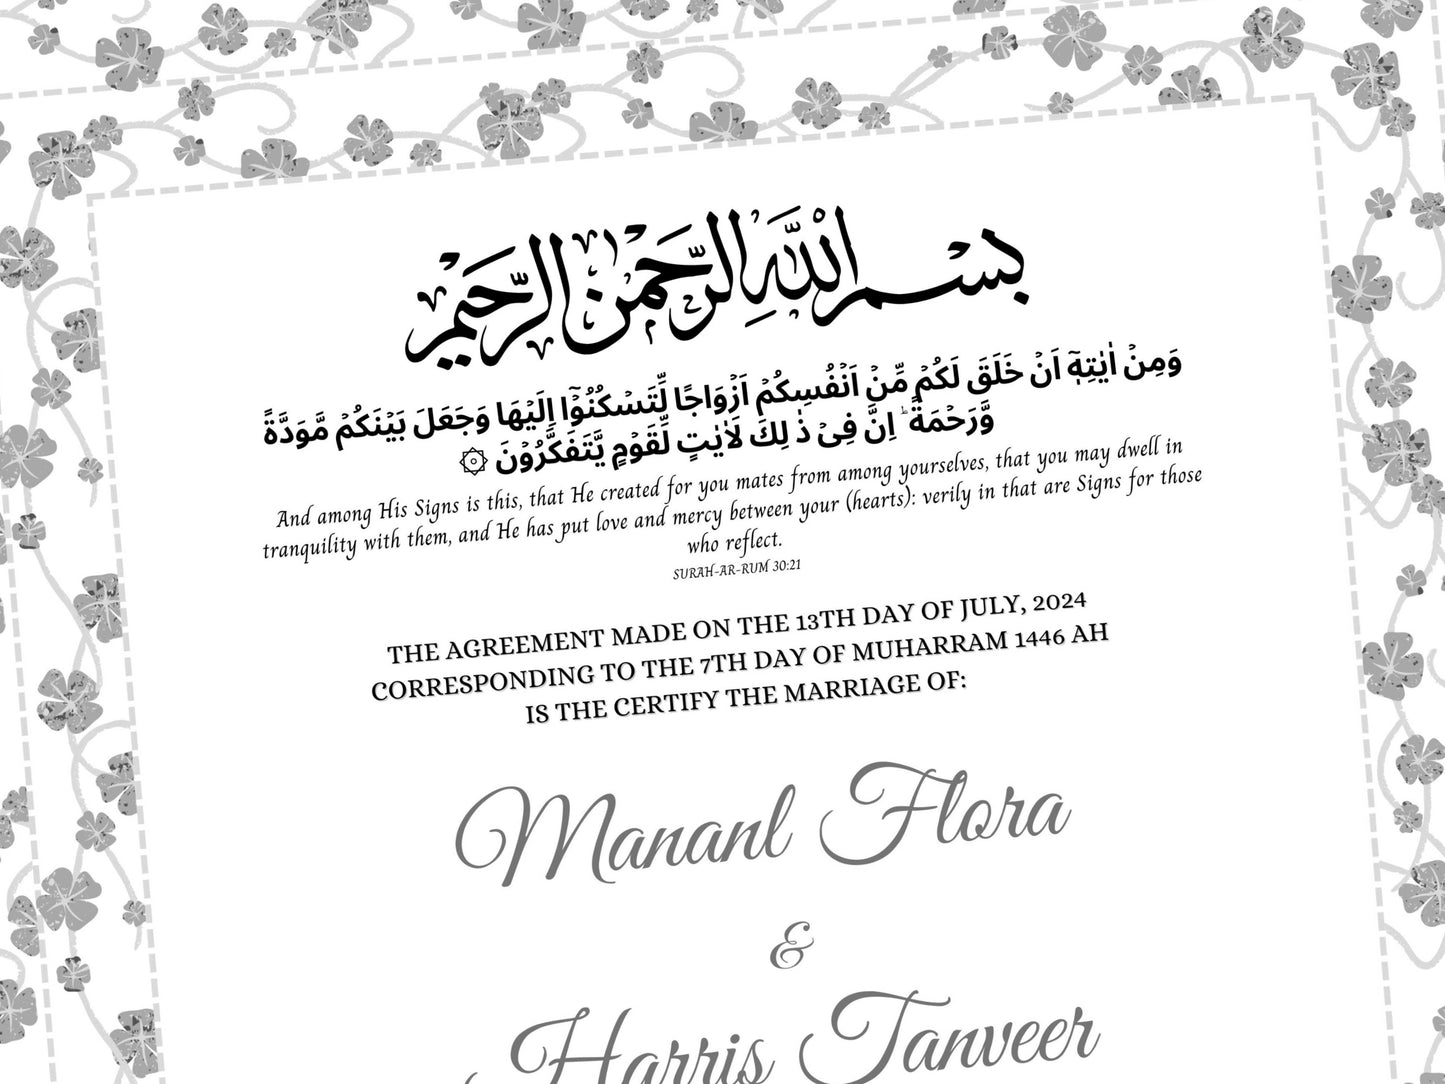 بسم الله الرحمن الرحيم
وَمِنْ اٰيٰتِهٖٓ اَنْ خَلَقَ لَكُمْ مِّنْ اَنْفُسِكُمْ اَزْوَاجًا لِّتَسْكُنُوْٓا اِلَيْهَا وَجَعَلَ بَيْنَكُمْ مَّوَدَّةً
وَّرَحْمَةً ؕ اِنَّ فِىْ ذٰ لِكَ لَاٰيٰتٍ لِّقَوْمٍ يَّتَفَكَّرُوْنَ ۞
And among His Signs is this, that He created for you mates from among yourselves, that you may dwell in
tranquility with them, and He has put love and mercy between your (hearts): verily in that are Signs for those
who reflect.
SURAH-AR-RUM 30:21
THE AGREEMENT MADE ON THE 13TH DAY OF JULY, 2024
CORRESPONDING TO THE 7TH DAY OF MUHARRAM 1446 AH
IS THE CERTIFY THE MARRIAGE OF:
Mananl Flora
&
Harris Tanveer